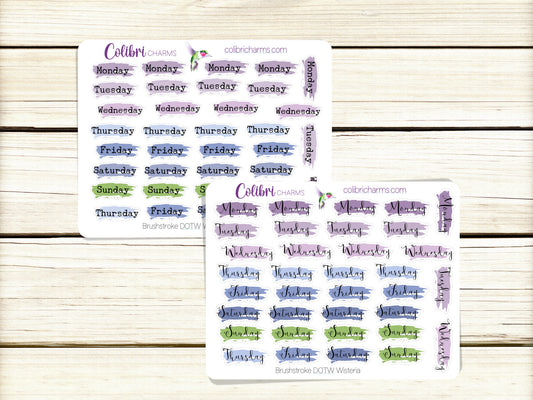 Colibri CHARMS colibricharms.com
Monday Monday Monday Monday Monday
Tuesday Tuesday Tuesday Tuesday
Wednesday Wednesday Wednesday Wednesday
Thursday Thursday Thursday Thursday Tuesday
Friday Friday Friday Friday
Saturday Saturday Saturday Saturday
Sunday Sunday
Thursday Friday
Brushstroke DOTW
Colibri CHARMS colibricharms.com
Monday Monday Monday Monday Monday
Tuesday Tuesday Tuesday Tuesday
Wednesday Wednesday Wednesday Wednesday
Thursday Thursday Thursday Thursday Tuesday
Friday Friday Friday Friday
Saturday Saturday Saturday Saturday Wednesday
Sunday Sunday Sunday Sunday
Thursday Friday Saturday Sunday
Brushstroke DOTW Wisteria